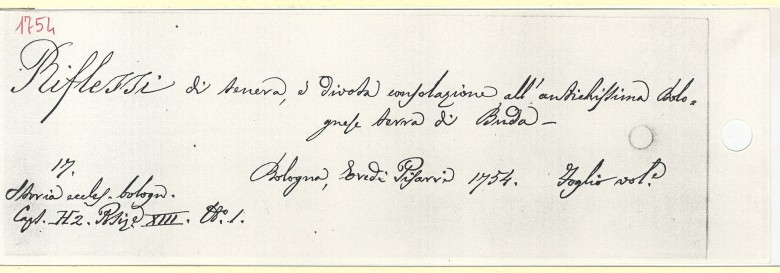 1754
Riflessi di tenera, e divota consolazione all'antichissima Bolo=
gnese terra di Buda —
Bologna, Eredi Pisarri 1754. Foglio vol.e
17.
Storia eccles. bologn.
Cart. H2. XIII. No. 1.